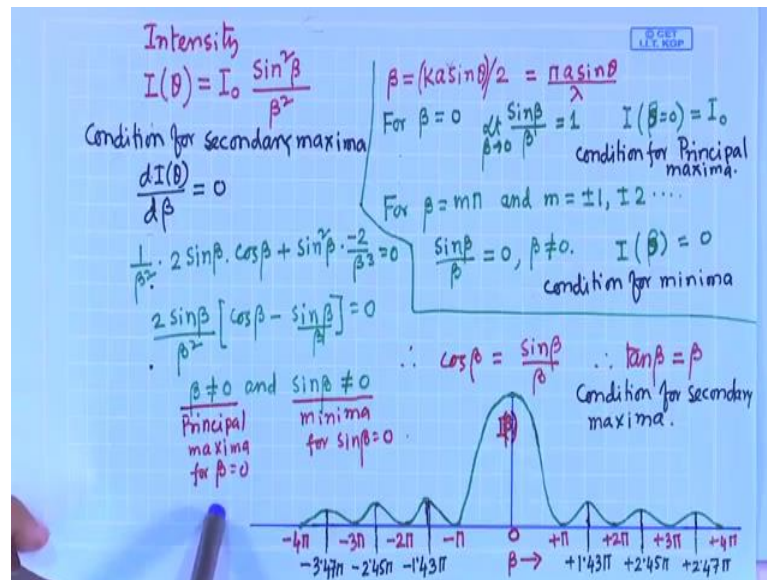 © CET
I.I.T. KGP
Intensity
I(θ) = I₀ Sin²β / β²
Condition for secondary maxima
dI(θ)/dβ = 0
1/β² · 2 Sinβ. Cosβ + Sin²β · -2/β³ = 0
2 Sinβ/β² [Cosβ - Sinβ/β] = 0
β ≠ 0 and Sinβ ≠ 0
Principal
maxima
for β=0
minima
for Sinβ=0
β = (Ka Sinθ)/2 = πa sinθ/λ
For β = 0 Lt β→0 Sinβ/β = 1 I(β=0) = I₀
condition for Principal
maxima.
For β = mπ and m = ±1, ±2 ....
Sinβ/β = 0, β ≠ 0. I(β) = 0
condition for minima
∴ Cosβ = Sinβ/β ∴ tanβ = β
Condition for secondary
maxima.
-4π -3π -2π -π 0 +π +2π +3π +4π
-3.47π -2.45π -1.43π β→ +1.43π +2.45π +2.47π